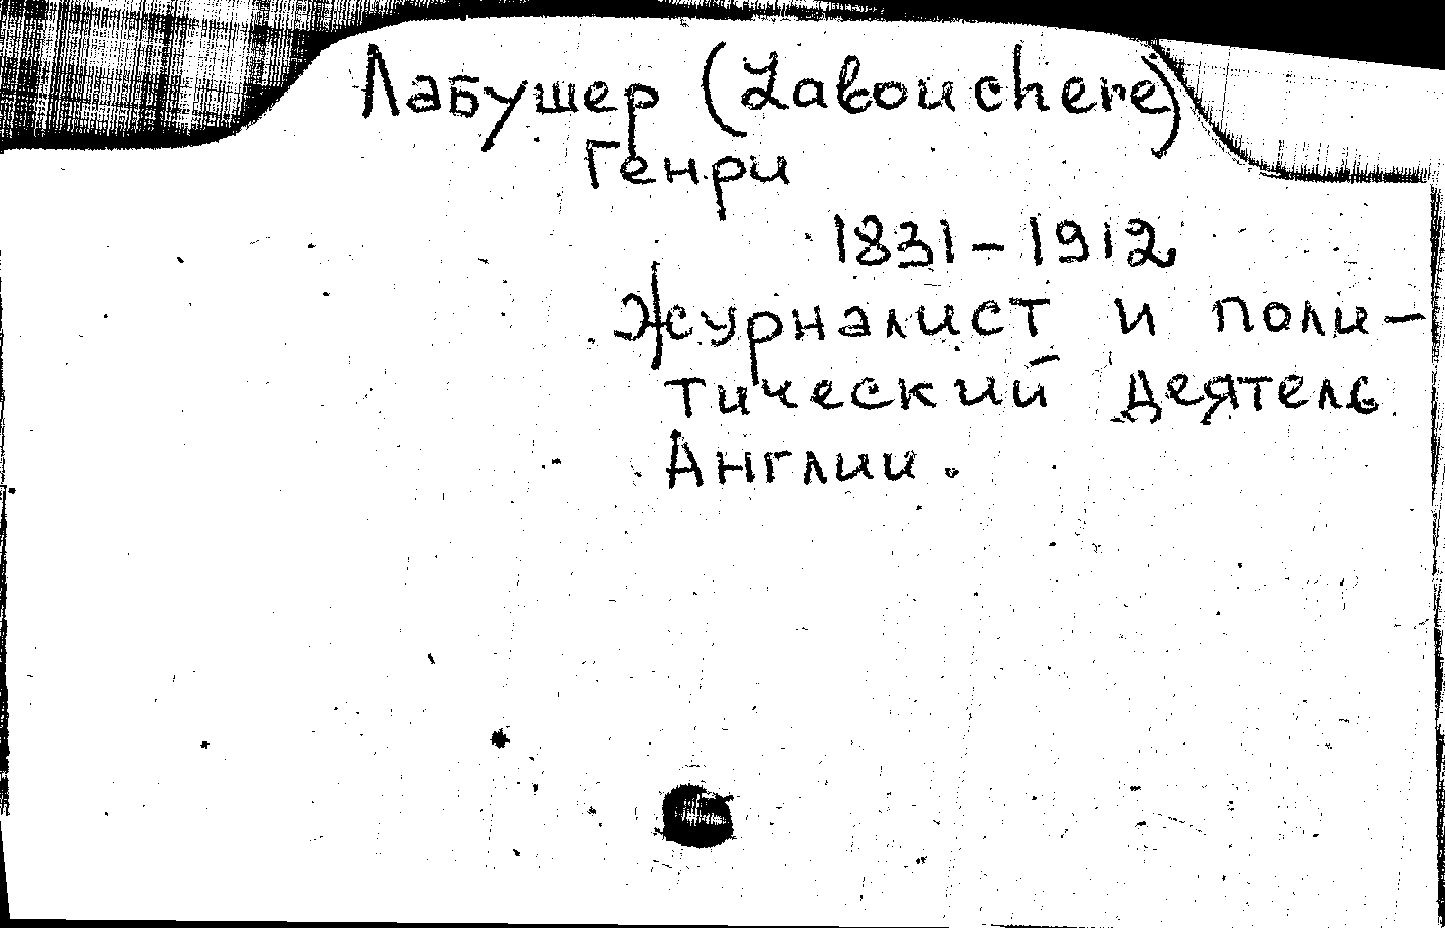 Лабушер (Labouchere)
Генри
1831-1912
Журналист и поли-
тический деятель
Англии.